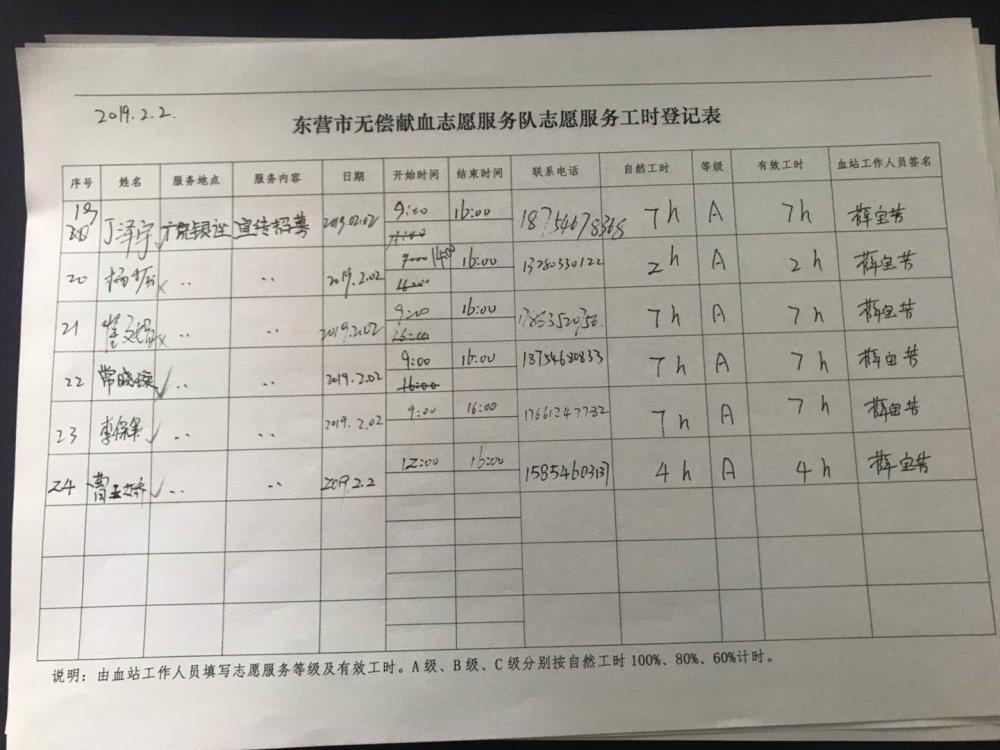 2019.2.2.
东营市无偿献血志愿服务队志愿服务工时登记表
序号 姓名 服务地点 服务内容 日期 开始时间 结束时间 联系电话 自然工时 等级 有效工时 血站工作人员签名
19 丁泽宇 宣传招募 2019.02.02 9:00 16:00 18754678368 7h A 7h 薛宝芳
20 〃 〃 2019.2.02 14:00 16:00 13780330122 2h A 2h 薛宝芳
21 〃 〃 2019.2.02 9:00 16:00 7h A 7h 薛宝芳
16:00
22 常晓 〃 〃 2019.2.02 9:00 16:00 18754680833 7h A 7h 薛宝芳
16:00
23 李保军 〃 〃 2019.2.02 9:00 16:00 17661247732 7h A 7h 薛宝芳
24 〃 〃 2019.2.2 12:00 16:00 4h A 4h 薛宝芳
说明：由血站工作人员填写志愿服务等级及有效工时。A级、B级、C级分别按自然工时100%、80%、60%计时。